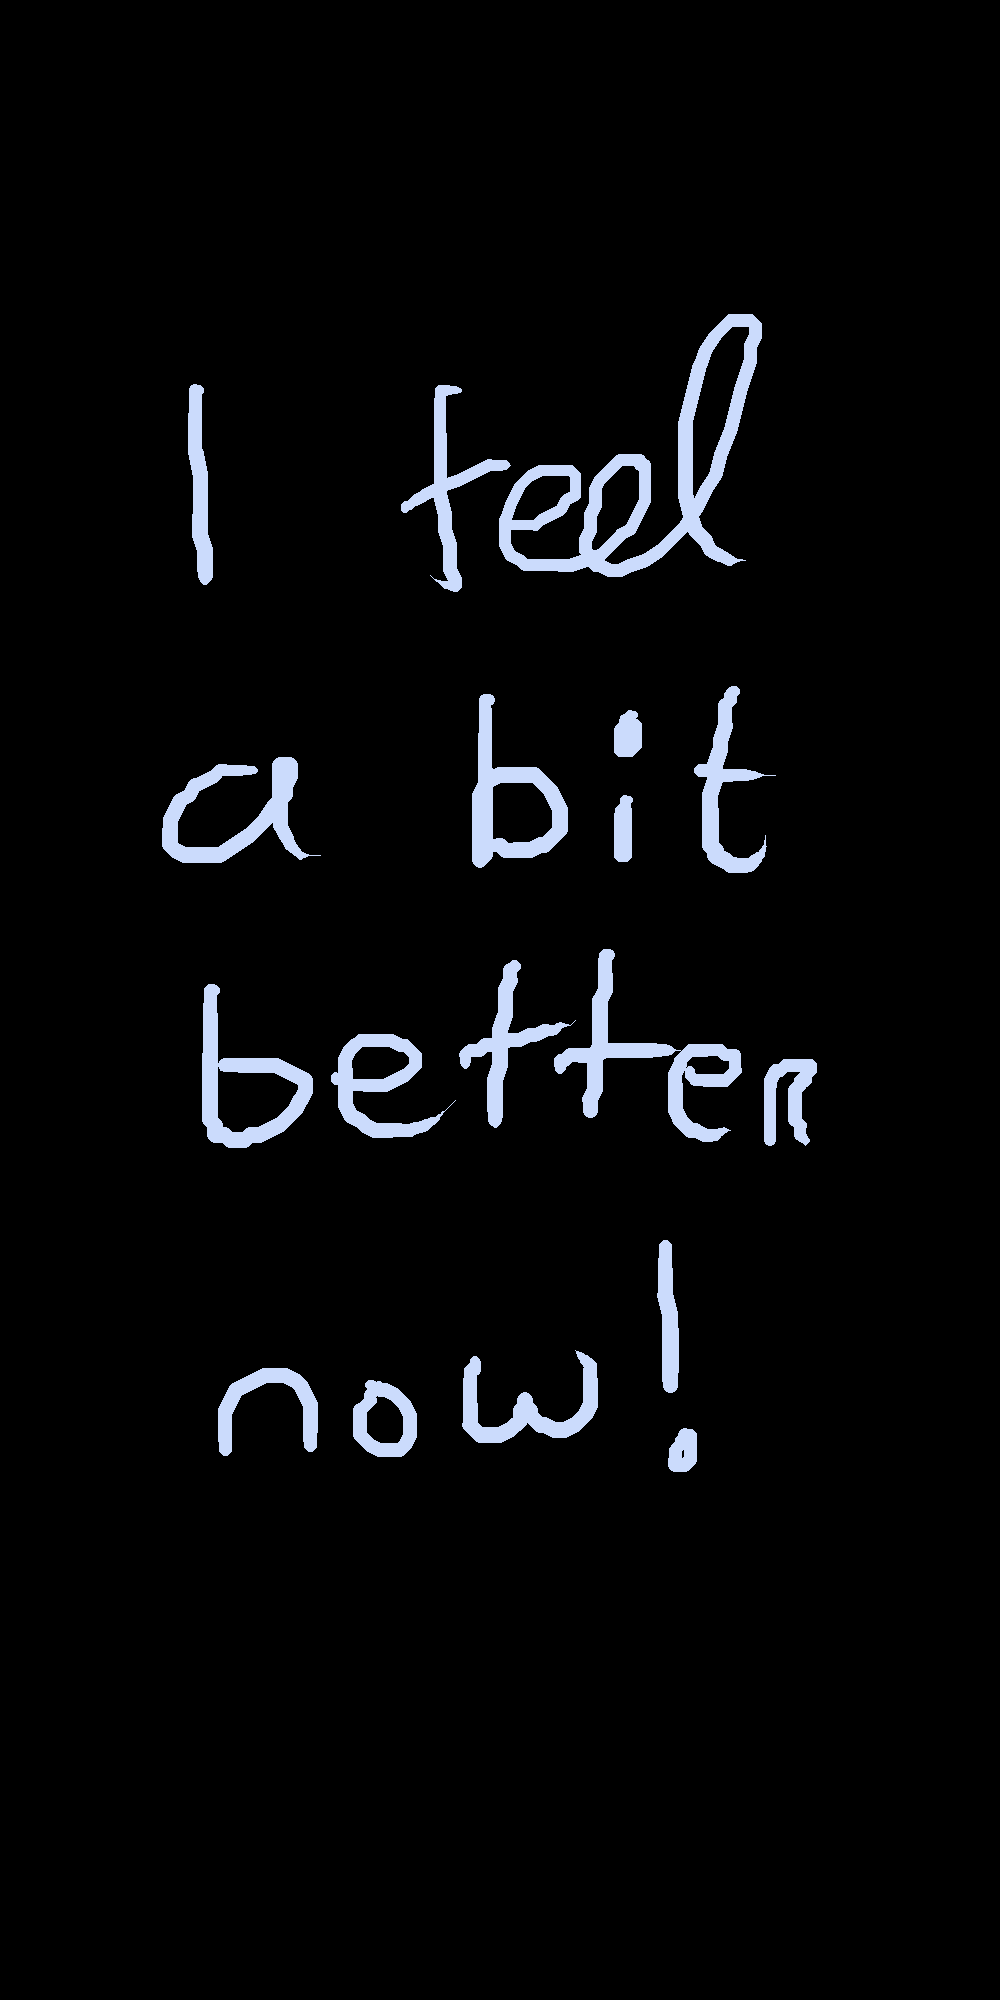 I feel
a bit
better
now!